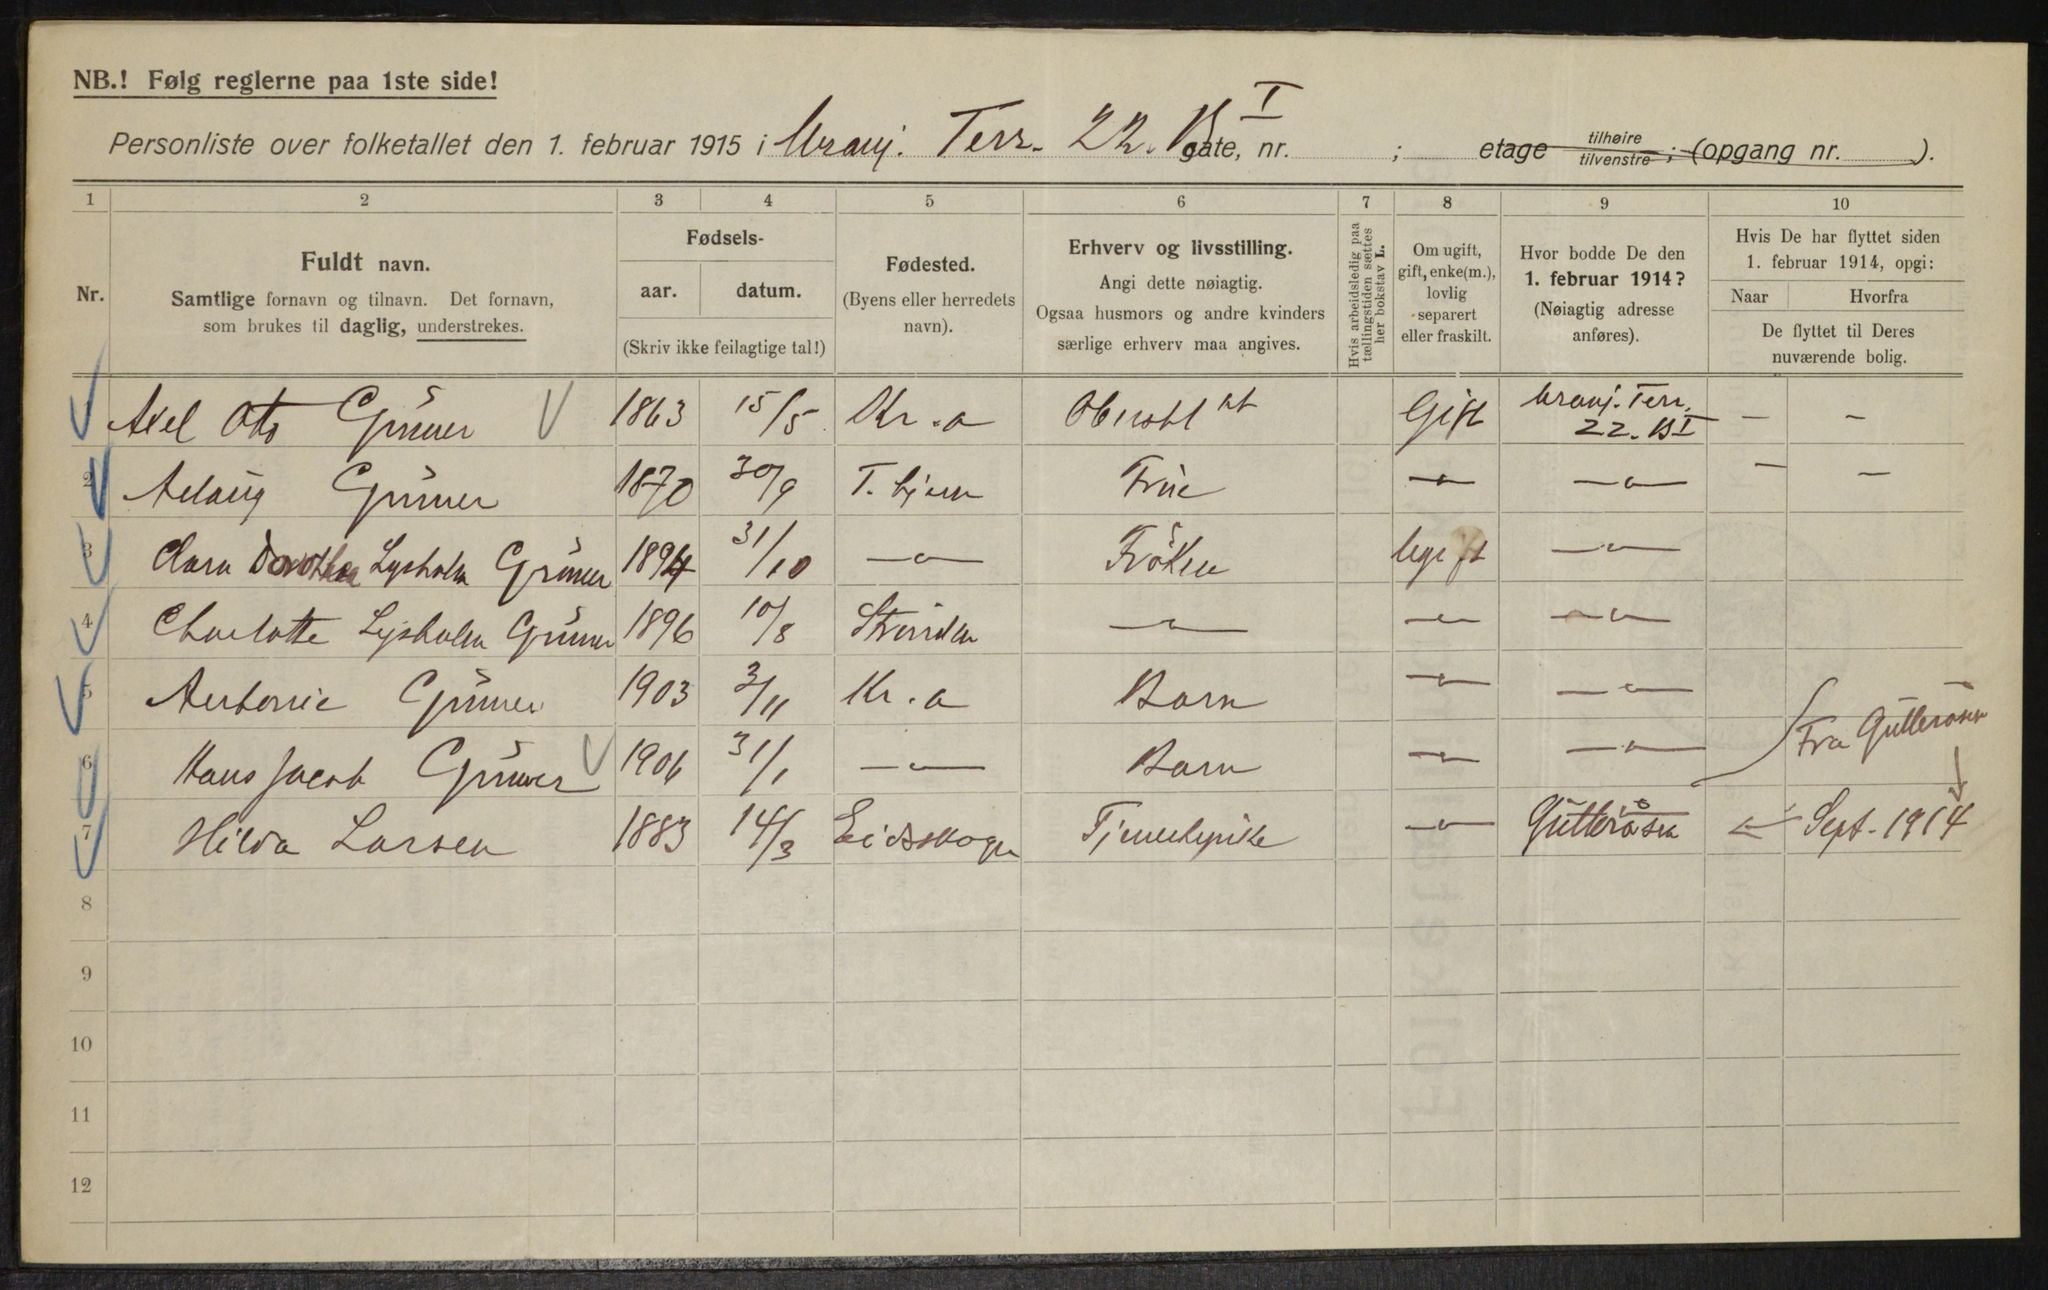 NB.! Følg reglerne paa 1ste side!
Personliste over folketallet den 1. februar 1915 i Uranj. Terr. 22. B I gate, nr. ; etage tilhøire tilvenstre ; (opgang nr. ).
1 2 3 4 5 6 7 8 9 10
Nr.
Fuldt navn.
Samtlige fornavn og tilnavn. Det fornavn,
som brukes til daglig, understrekes.
Fødsels-
aar. datum.
(Skriv ikke feilagtige tal!)
Fødested.
(Byens eller herredets
navn).
Erhverv og livsstilling.
Angi dette nøiagtig.
Ogsaa husmors og andre kvinders
særlige erhverv maa angives.
Hvis arbeidsledig paa
tællingstiden sættes
her bokstav L.
Om ugift,
gift, enke(m.),
lovlig
separert
eller fraskilt.
Hvor bodde De den
1. februar 1914?
(Nøiagtig adresse
anføres).
Hvis De har flyttet siden
1. februar 1914, opgi:
Naar Hvorfra
De flyttet til Deres
nuværende bolig.
1 Axel Otto Grüner 1863 15/5 Kr.a Oberstlnt Gift Uranj. Terr. 22. B I — —
2 Aslaug Grüner 1870 30/9 T.hjem Frue —"— —"— — —
3 Clara Dorothea Lysholm Grüner 1894 31/10 —"— Fröken Ugift —"—
4 Charlotte Lysholm Grüner 1896 10/8 Strinden —"— —"— —"—
5 Antonie Grüner 1903 3/11 Kr.a Barn —"— —"—
6 Hans Jacob Grüner 1906 31/1 —"— Barn —"— —"— Fra Gutteraasen
7 Hilda Larsen 1883 14/3 Eidsskogn Tjenestepike —"— Gutteråsen Sept. 1914
8
9
10
11
12